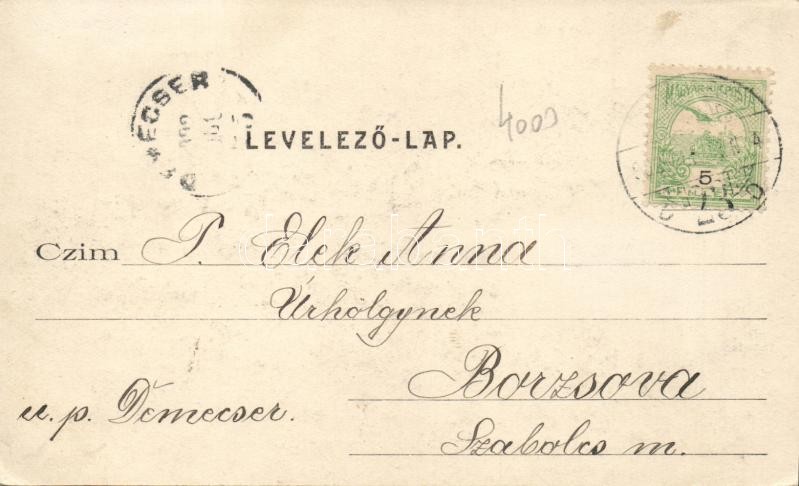 DEMECSER
4000
LEVELEZŐ-LAP.
MAGYAR KIR. POSTA
5
Czim P. Elek Anna
Úrhölgynek
Borzsova
u. p. Demecser.
Szabolcs m.